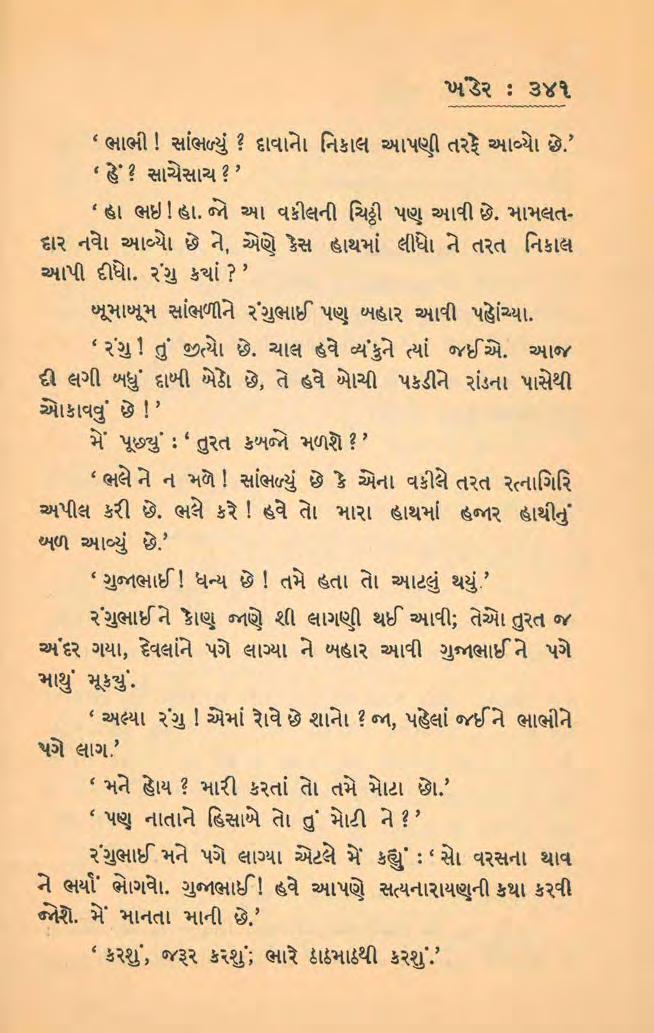 ખંડેર : ૩૪૧
‘ ભાભી ! સાંભળ્યું ? દાવાનો નિકાલ આપણી તરફે આવ્યો છે.’
‘ હેં ? સાચેસાચ ? ’
‘ હા ભઇ ! હા. જો આ વકીલની ચિઠ્ઠી પણ આવી છે. મામલત-
દાર નવો આવ્યો છે ને, એણે કેસ હાથમાં લીધો ને તરત નિકાલ
આપી દીધો. રંગુ ક્યાં ? ’
બૂમાબૂમ સાંભળીને રંગુભાઈ પણ બહાર આવી પહોંચ્યા.
‘ રંગુ ! તું જીત્યો છે. ચાલ હવે વ્યંકુને ત્યાં જઈએ. આજ
દી લગી બધું દાબી બેઠો છે, તે હવે બોચી પકડીને રાંડના પાસેથી
ઓકાવવું છે ! ’
મેં પૂછ્યું : ‘ તુરત કબજો મળશે ? ’
‘ ભલે ને ન મળે ! સાંભળ્યું છે કે એના વકીલે તરત રત્નાગિરિ
અપીલ કરી છે. ભલે કરે ! હવે તો મારા હાથમાં હજાર હાથીનું
બળ આવ્યું છે.’
‘ ગુજાભાઈ ! ધન્ય છે ! તમે હતા તો આટલું થયું.’
રંગુભાઈને કોણ જાણે શી લાગણી થઈ આવી; તેઓ તુરત જ
અંદર ગયા, દેવલાંને પગે લાગ્યા ને બહાર આવી ગુજાભાઈને પગે
માથું મૂક્યું.
‘ અલ્યા રંગુ ! એમાં રોવે છે શાનો ? જા, પહેલાં જઈને ભાભીને
પગે લાગ.’
‘ મને હોય ? મારી કરતાં તો તમે મોટા છો.’
‘ પણ નાતાને હિસાબે તો તું મોટી ને ? ’
રંગુભાઈ મને પગે લાગ્યા એટલે મેં કહ્યું : ‘ સો વરસના થાવ
ને ભર્યાં ભોગવો. ગુજાભાઈ ! હવે આપણે સત્યનારાયણની કથા કરવી
જોશે. મેં માનતા માની છે.’
‘ કરશું, જરૂર કરશું; ભારે ઠાઠમાઠથી કરશું.’